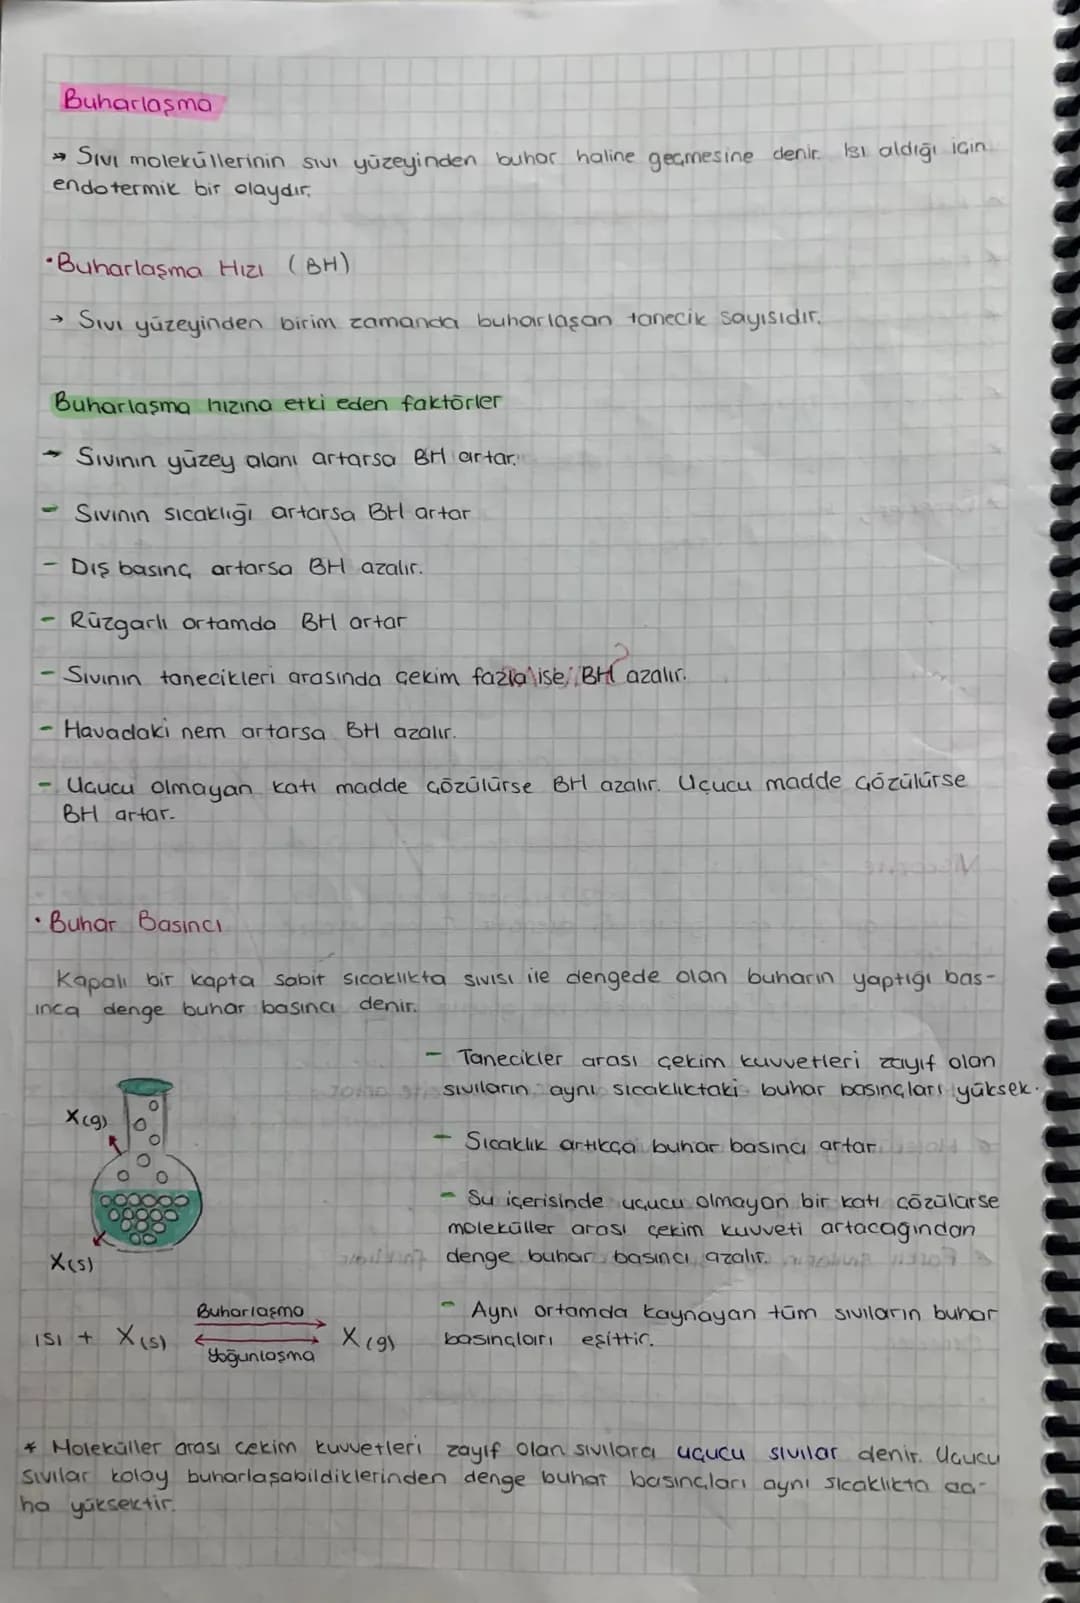 Buharlaşma
→ Sıvı moleküllerinin sıvı yüzeyinden buhar haline geçmesine denir. Isı aldığı için
endotermik bir olaydır.
• Buharlaşma Hızı (BH)
→ Sıvı yüzeyinden birim zamanda buharlaşan tanecik sayısıdır.
Buharlaşma hızına etki eden faktörler
→ Sıvının yüzey alanı artarsa BH artar.
- Sıvının sıcaklığı artarsa BH artar
- Dış basınç artarsa BH azalır.
- Rüzgarlı ortamda BH artar
- Sıvının tanecikleri arasında çekim fazla ise BH azalır.
- Havadaki nem artarsa BH azalır.
- Uçucu olmayan katı madde çözülürse BH azalır. Uçucu madde çözülürse
BH artar.
• Buhar Basıncı
Kapalı bir kapta sabit sıcaklıkta sıvısı ile dengede olan buharın yaptığı bas-
ınca denge buhar basıncı denir.
- Tanecikler arası çekim kuvvetleri zayıf olan
sıvıların aynı sıcaklıktaki buhar basınçları yüksek.
X(g)
- Sıcaklık artıkça buhar basıncı artar.
- Su içerisinde uçucu olmayan bir katı çözülürse
moleküller arası çekim kuvveti artacağından
denge buhar basıncı azalır.
X(s)
- Aynı ortamda kaynayan tüm sıvıların buhar
basınçları eşittir.
Buharlaşma
ısı + X(s) X(g)
Yoğunlaşma
* Moleküller arası çekim kuvvetleri zayıf olan sıvılara uçucu sıvılar denir. Uçucu
sıvılar kolay buharlaşabildiklerinden denge buhar basınçları aynı sıcaklıkta da-
ha yüksektir.